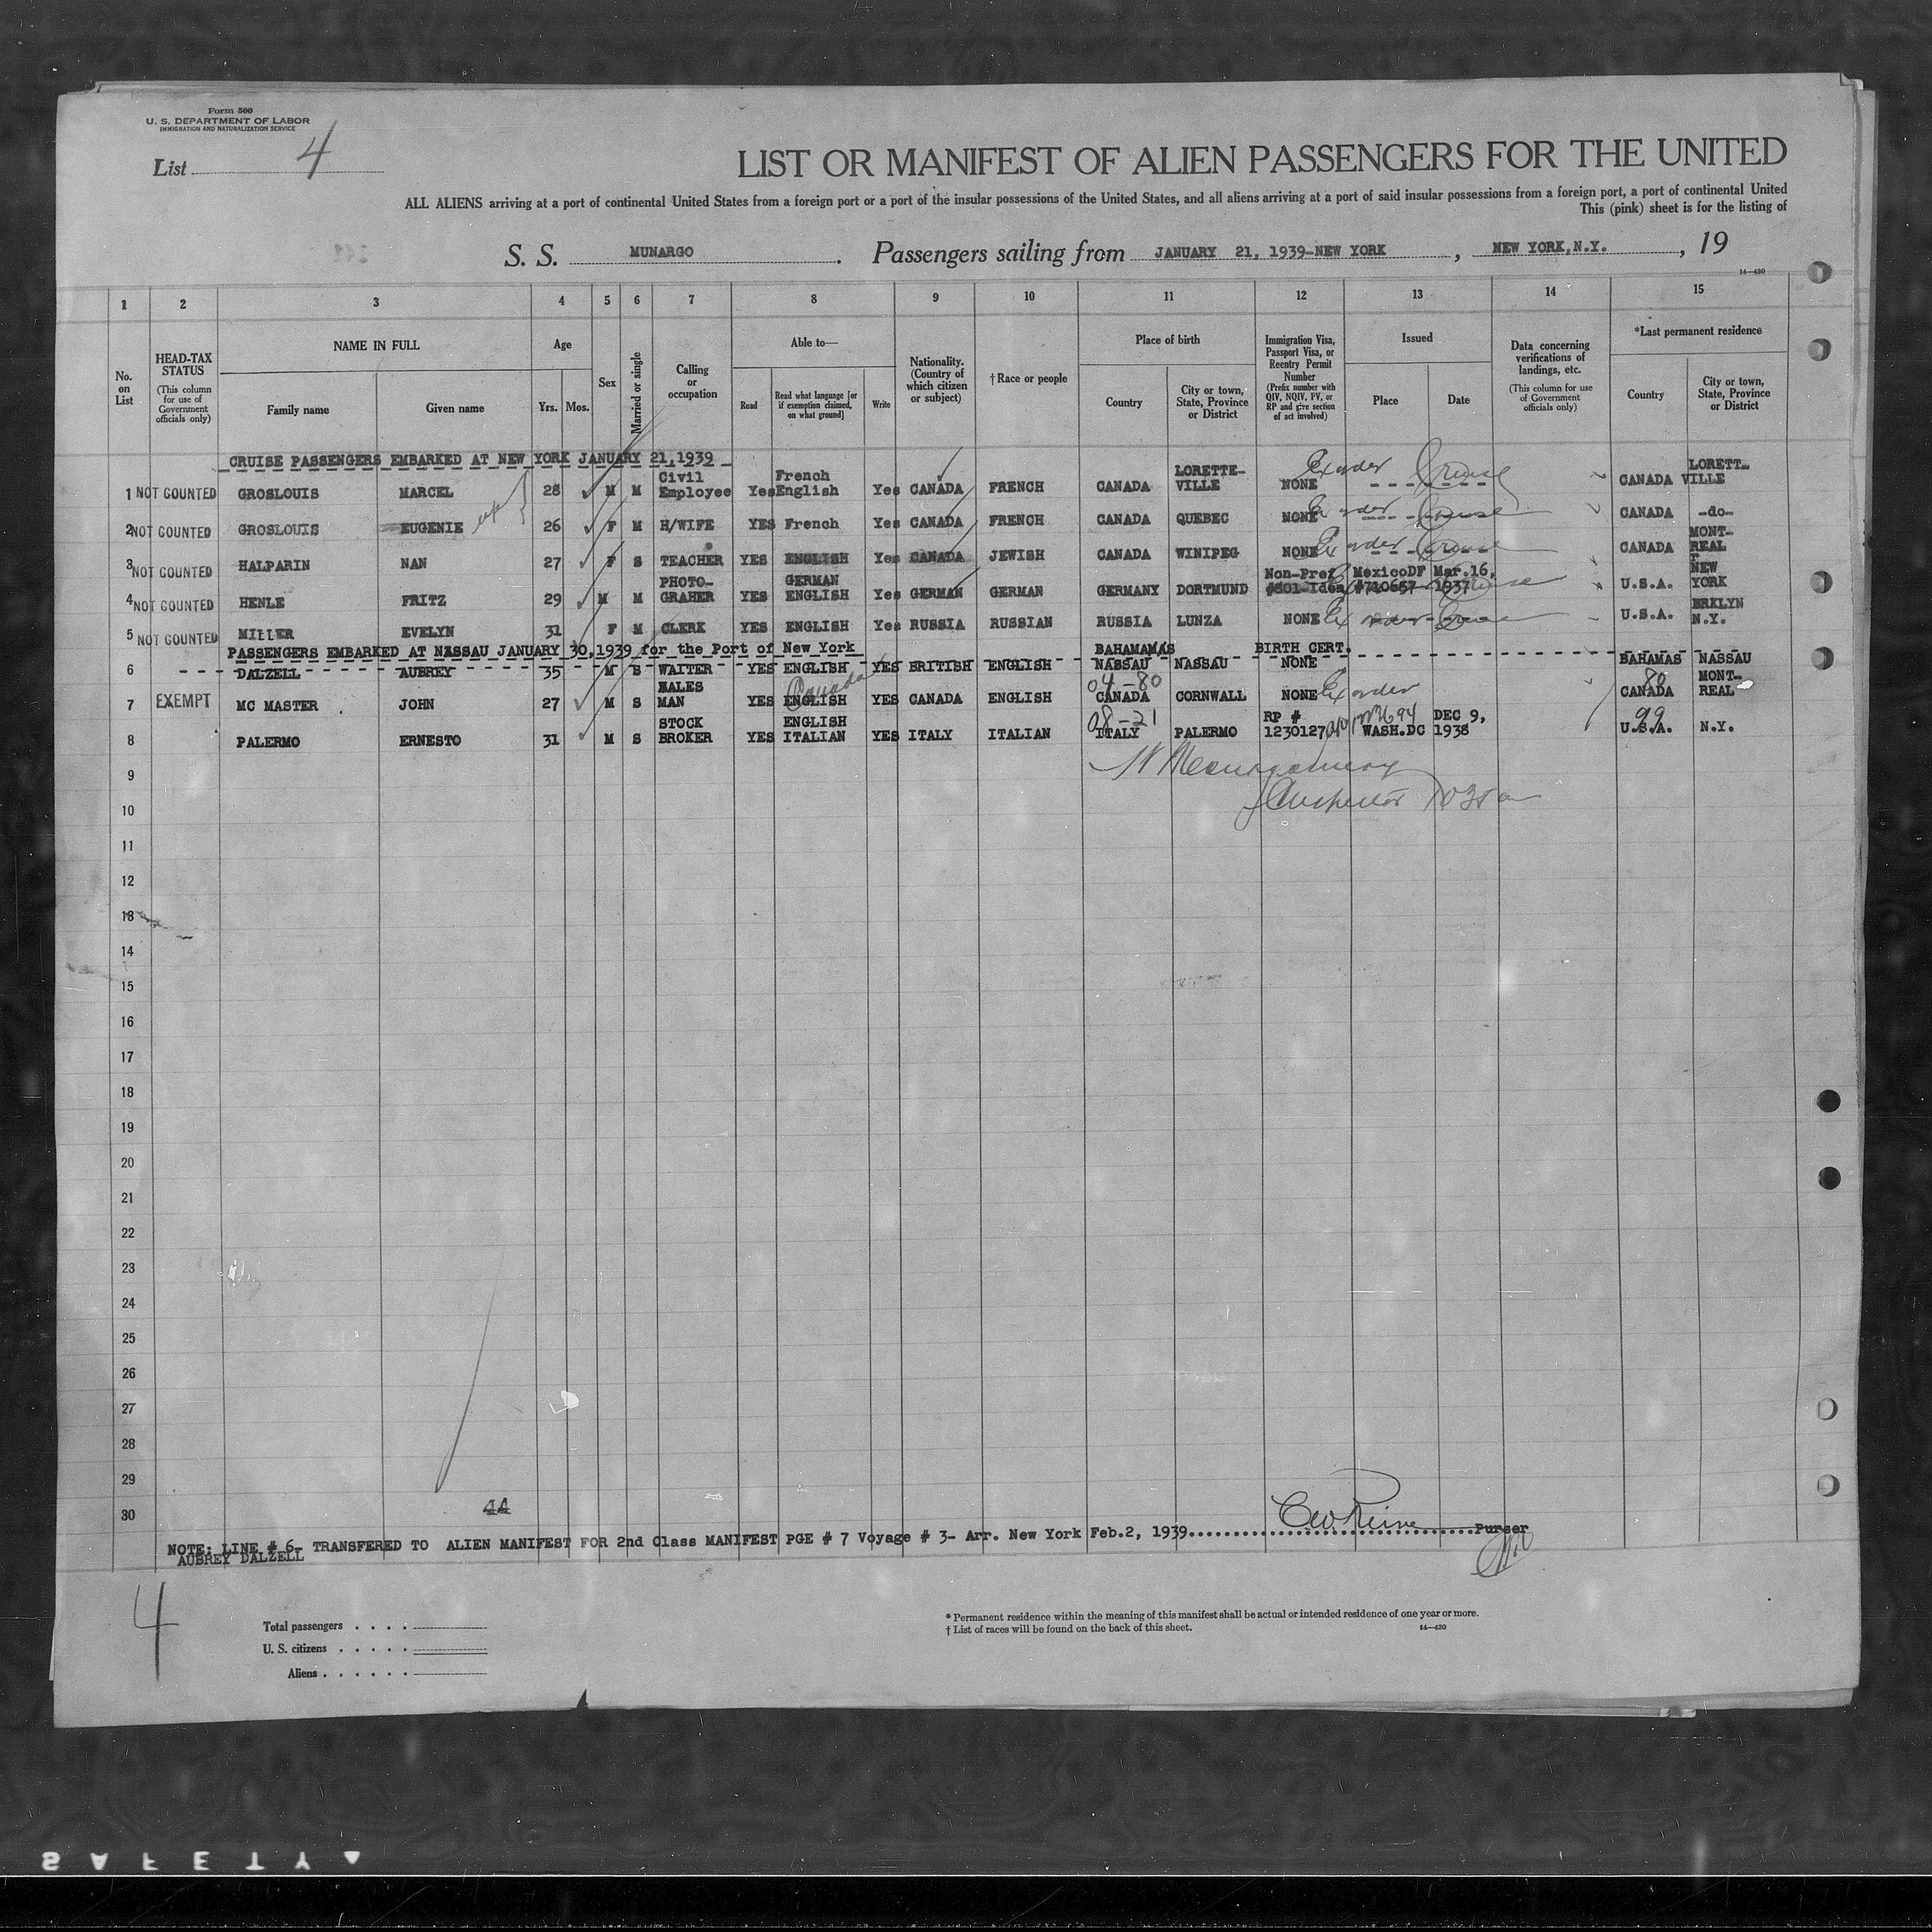 Form 500
U. S. DEPARTMENT OF LABOR
IMMIGRATION AND NATURALIZATION SERVICE
List 4
LIST OR MANIFEST OF ALIEN PASSENGERS FOR THE UNITED
ALL ALIENS arriving at a port of continental United States from a foreign port or a port of the insular possessions of the United States, and all aliens arriving at a port of said insular possessions from a foreign port, a port of continental United
This (pink) sheet is for the listing of
S. S. MUNARGO. Passengers sailing from JANUARY 21, 1939-NEW YORK, NEW YORK,N.Y., 19
14—430
1 2 3 4 5 6 7 8 9 10 11 12 13 14 15
No. on List
HEAD-TAX STATUS (This column for use of Government officials only)
NAME IN FULL
Family name Given name
Age
Yrs. Mos.
Sex
Married or single
Calling or occupation
Able to—
Read
Read what language [or if exemption claimed, on what ground]
Write
Nationality. (Country of which citizen or subject)
†Race or people
Place of birth
Country
City or town, State, Province or District
Immigration Visa, Passport Visa, or Reentry Permit Number (Prefix number with QIV, NQIV, PV, or RP and give section of act involved)
Issued
Place Date
Data concerning verifications of landings, etc. (This column for use of Government officials only)
*Last permanent residence
Country
City or town, State, Province or District
CRUISE PASSENGERS EMBARKED AT NEW YORK JANUARY 21,1939
1 NOT COUNTED GROSLOUIS MARCEL 28 M M Civil Employee Yes French English Yes CANADA FRENCH CANADA LORETTE-VILLE NONE Ex order Cruise CANADA LORETT-VILLE
2 NOT COUNTED GROSLOUIS EUGENIE 26 F M H/WIFE YES French Yes CANADA FRENCH CANADA QUEBEC NONE Ex order Cruise CANADA -do-
3 NOT COUNTED HALPARIN NAN 27 F S TEACHER YES ENGLISH Yes CANADA JEWISH CANADA WINIPEG NONE Ex order Cruise CANADA MONT-REAL
4 NOT COUNTED HENLE FRITZ 29 M M PHOTO-GRAHER YES GERMAN ENGLISH Yes GERMAN GERMAN GERMANY DORTMUND Non-Pref #601-Iden MexicoDF #710657 Mar.16, 1937 U.S.A. NEW YORK
5 NOT COUNTED MILLER EVELYN 31 F M CLERK YES ENGLISH Yes RUSSIA RUSSIAN RUSSIA LUNZA NONE Ex order Cruise U.S.A. BRKLYN N.Y.
PASSENGERS EMBARKED AT NASSAU JANUARY 30,1939 for the Port of New York
6 DALZELL AUBREY 35 M S WAITER YES ENGLISH YES BRITISH ENGLISH BAHAMAS NASSAU NASSAU BIRTH CERT. NONE BAHAMAS NASSAU
7 EXEMPT MC MASTER JOHN 27 M S SALES MAN YES Canada ENGLISH YES CANADA ENGLISH 04-80 CANADA CORNWALL NONE Ex order 80 CANADA MONT-REAL
8 PALERMO ERNESTO 31 M S STOCK BROKER YES ENGLISH ITALIAN YES ITALY ITALIAN 08-21 ITALY PALERMO RP # 1230127 WASH.DC DEC 9, 1938 99 U.S.A. N.Y.
9
Inspector
10
11
12
13
14
15
16
17
18
19
20
21
22
23
24
25
26
27
28
29
30 44
NOTE: LINE # 6- TRANSFERED TO ALIEN MANIFEST FOR 2nd Class MANIFEST PGE # 7 Voyage # 3- Arr. New York Feb.2, 1939 Purser
AUBREY DALZELL
4
Total passengers
U. S. citizens
Aliens
* Permanent residence within the meaning of this manifest shall be actual or intended residence of one year or more.
† List of races will be found on the back of this sheet.
14—430
SAFETY